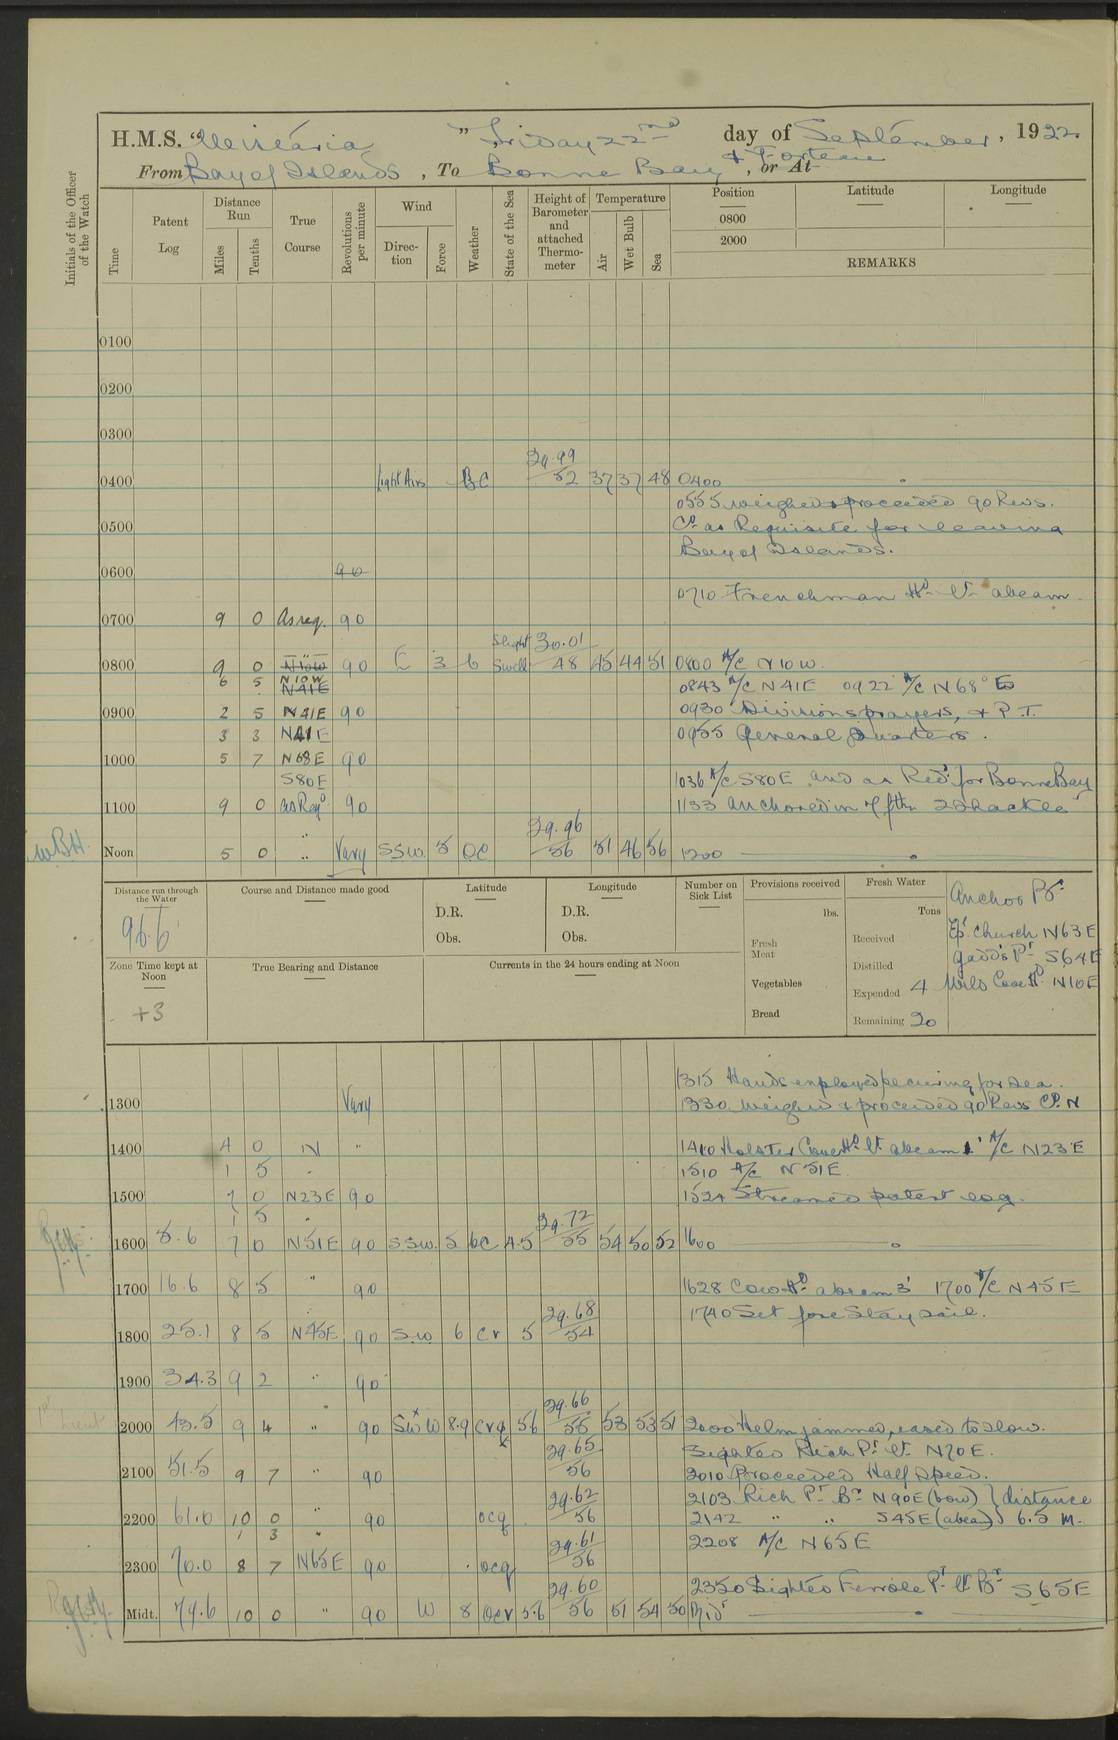 H.M.S. "Wisteria" Friday 22nd day of September, 1922.
From Bay of Islands, To Bonne Bay & Forteau, or At
Initials of the Officer of the Watch
Time
Patent Log
Distance Run
Miles
Tenths
True Course
Revolutions per minute
Wind
Direction
Force
Weather
State of the Sea
Height of Barometer and attached Thermometer
Temperature
Air
Wet Bulb
Sea
Position
0800
2000
Latitude
Longitude
REMARKS
0100
0200
0300
0400 light Airs BC 29.99 52 37 37 48 0400
0555 weighed & proceeded 90 Revs.
0500 Co. as Requisite for leaving
Bay of Islands.
0600 90
0710 Frenchman Hd. Lt. abeam.
0700 9 0 As req. 90
0800 9 0 N10W 90 E 3 b Slight Swell 30.01 48 45 44 51 0800 A/C N10W.
6 5 N10W N41E 0843 A/C N41E 0922 A/C N68°E
0900 2 5 N41E 90 0930 Divisions prayers, & P.T.
3 3 N41E 0955 General Quarters.
1000 5 7 N68E 90
S80E 1036 A/C S80E and as Req. for Bonne Bay
1100 9 0 as Req. 90 1133 anchored in 7 fthm 2 Shackles
W.B.H. Noon 5 0 " Vary SSW. 5 OC 29.96 56 51 46 56 1200
Distance run through the Water
96.6
Course and Distance made good
Latitude
D.R.
Obs.
Longitude
D.R.
Obs.
Number on Sick List
Provisions received
lbs.
Fresh Meat
Vegetables
Bread
Fresh Water
Tons
Received
Distilled
Expended 4
Remaining 20
Anchor Br.
Ep. Church N63E
Gadds Pt. S64E
Wild Cove Hd. N10E
Zone Time kept at Noon
+3
True Bearing and Distance
Currents in the 24 hours ending at Noon
1315 Hands employed securing for sea.
1300 Vary 1330 Weighed & proceeded 90 Revs Co. N
1400 4 0 N " 1410 Cove Hd. Lt. abeam 1' A/C N23E
1 5 " 1510 A/C N51E.
1500 7 0 N23E 90 1524 Streamed patent log.
1 5 "
1600 8.6 7 0 N51E 90 SSW. 5 bc 4.5 29.72 55 54 50 52 1600
1700 16.6 8 5 " 90 1628 Cow Hd. abeam 3' 1700 A/C N45E
1740 Set fore Stay sail.
1800 25.1 8 5 N45E 90 S.W. 6 cr 5 29.68 54
1900 34.3 9 2 " 90
2000 43.5 9 4 " 90 SWxW 8.9 crq 56 29.66 55 53 53 51 2000 Helm jammed, eased to slow.
Sighted Rich Pt. Lt. N70E.
2100 51.5 9 7 " 90 29.65 56 2010 Proceeded Half speed.
2103 Rich Pt. Br. N90E (bow) } distance
2200 61.0 10 0 " 90 ocq 29.62 56 2142 " " S45E (abeam) } 6.5 m.
1 3 " 2208 A/C N65E
2300 70.0 8 7 N65E 90 ocq 29.61 56
2350 Sighted Ferrole Pt. Lt. Br. S65E
Midt. 79.6 10 0 " 90 W 8 ocr 5.6 29.60 56 51 54 50 Mid.